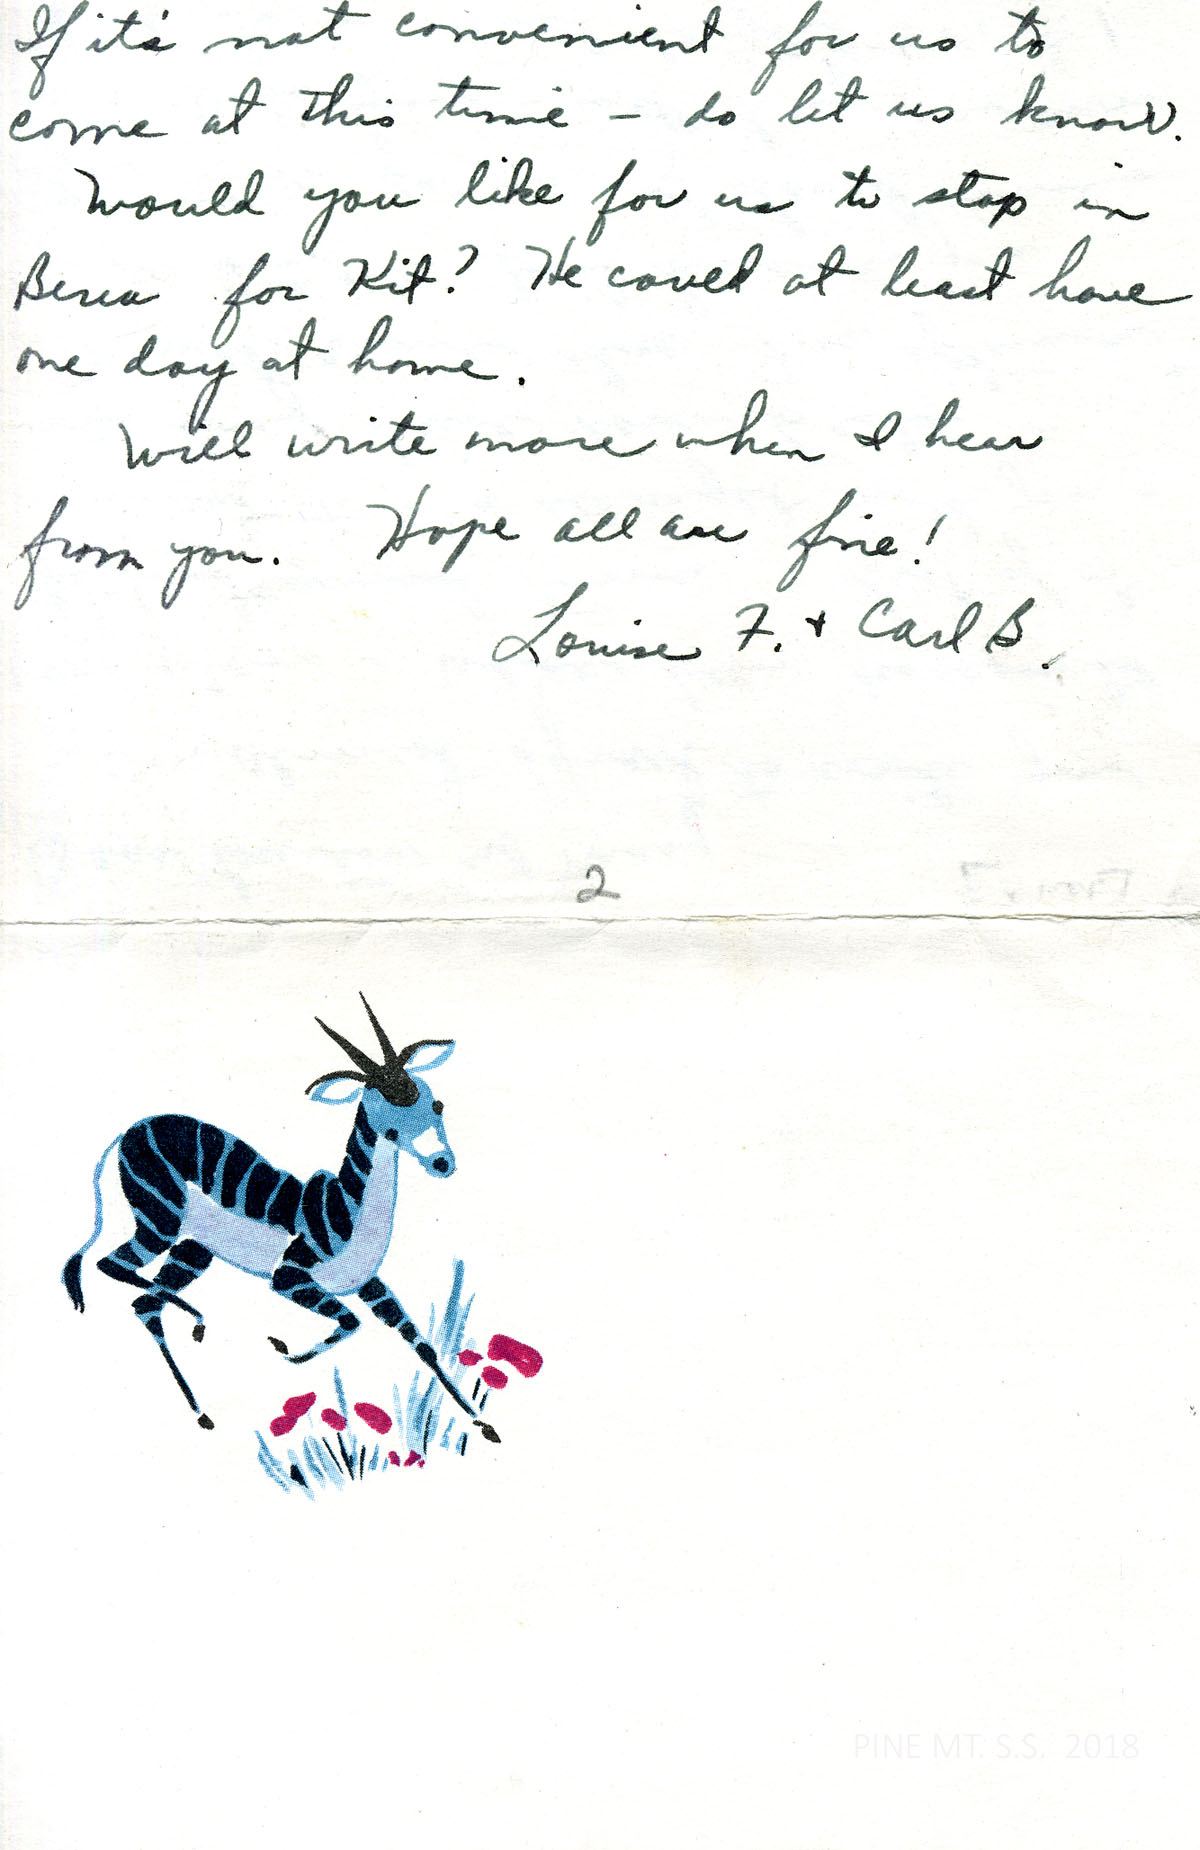 If it's not convenient for us to
come at this time – do let us know.
Would you like for us to stop in
Berea for Kit? He could at least have
one day at home.
Will write more when I hear
from you. Hope all are fine!
Louise F. + Carl B.
2
PINE MT. S.S. 2018